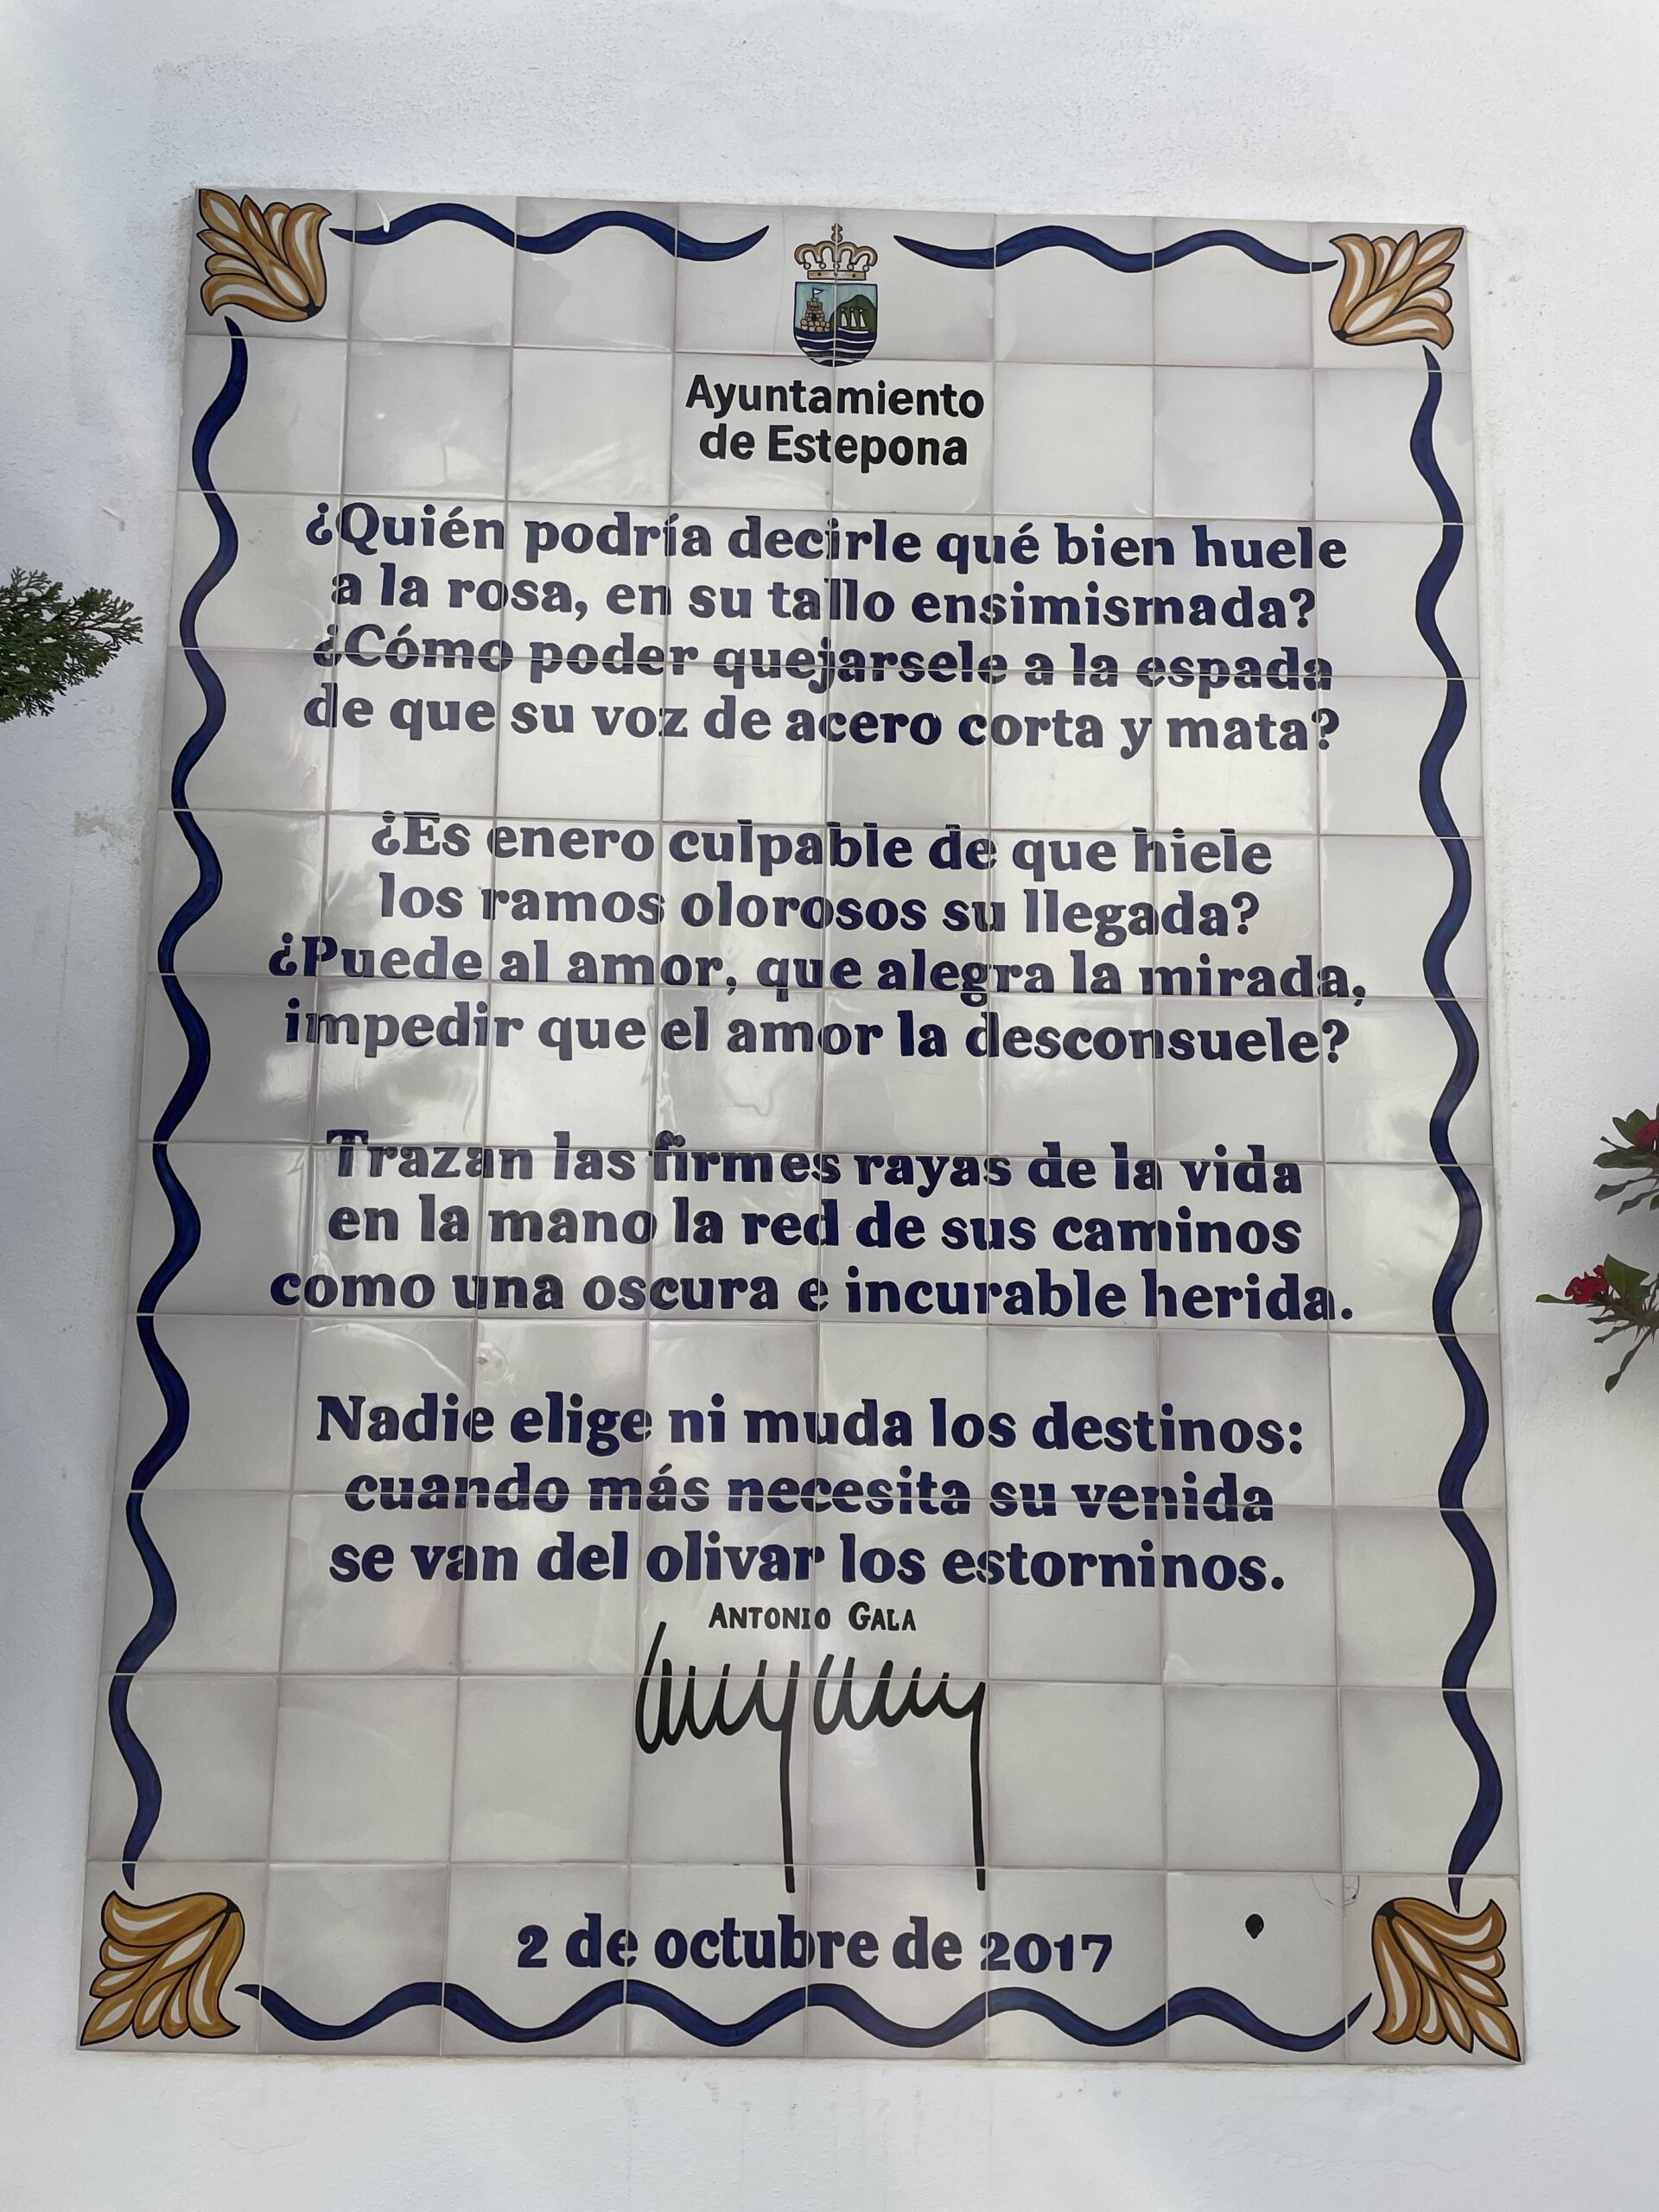 Ayuntamiento
de Estepona
¿Quién podría decirle qué bien huele
a la rosa, en su tallo ensimismada?
¿Cómo poder quejarsele a la espada
de que su voz de acero corta y mata?
¿Es enero culpable de que hiele
los ramos olorosos su llegada?
¿Puede al amor, que alegra la mirada,
impedir que el amor la desconsuele?
Trazan las firmes rayas de la vida
en la mano la red de sus caminos
como una oscura e incurable herida.
Nadie elige ni muda los destinos:
cuando más necesita su venida
se van del olivar los estorninos.
ANTONIO GALA
2 de octubre de 2017